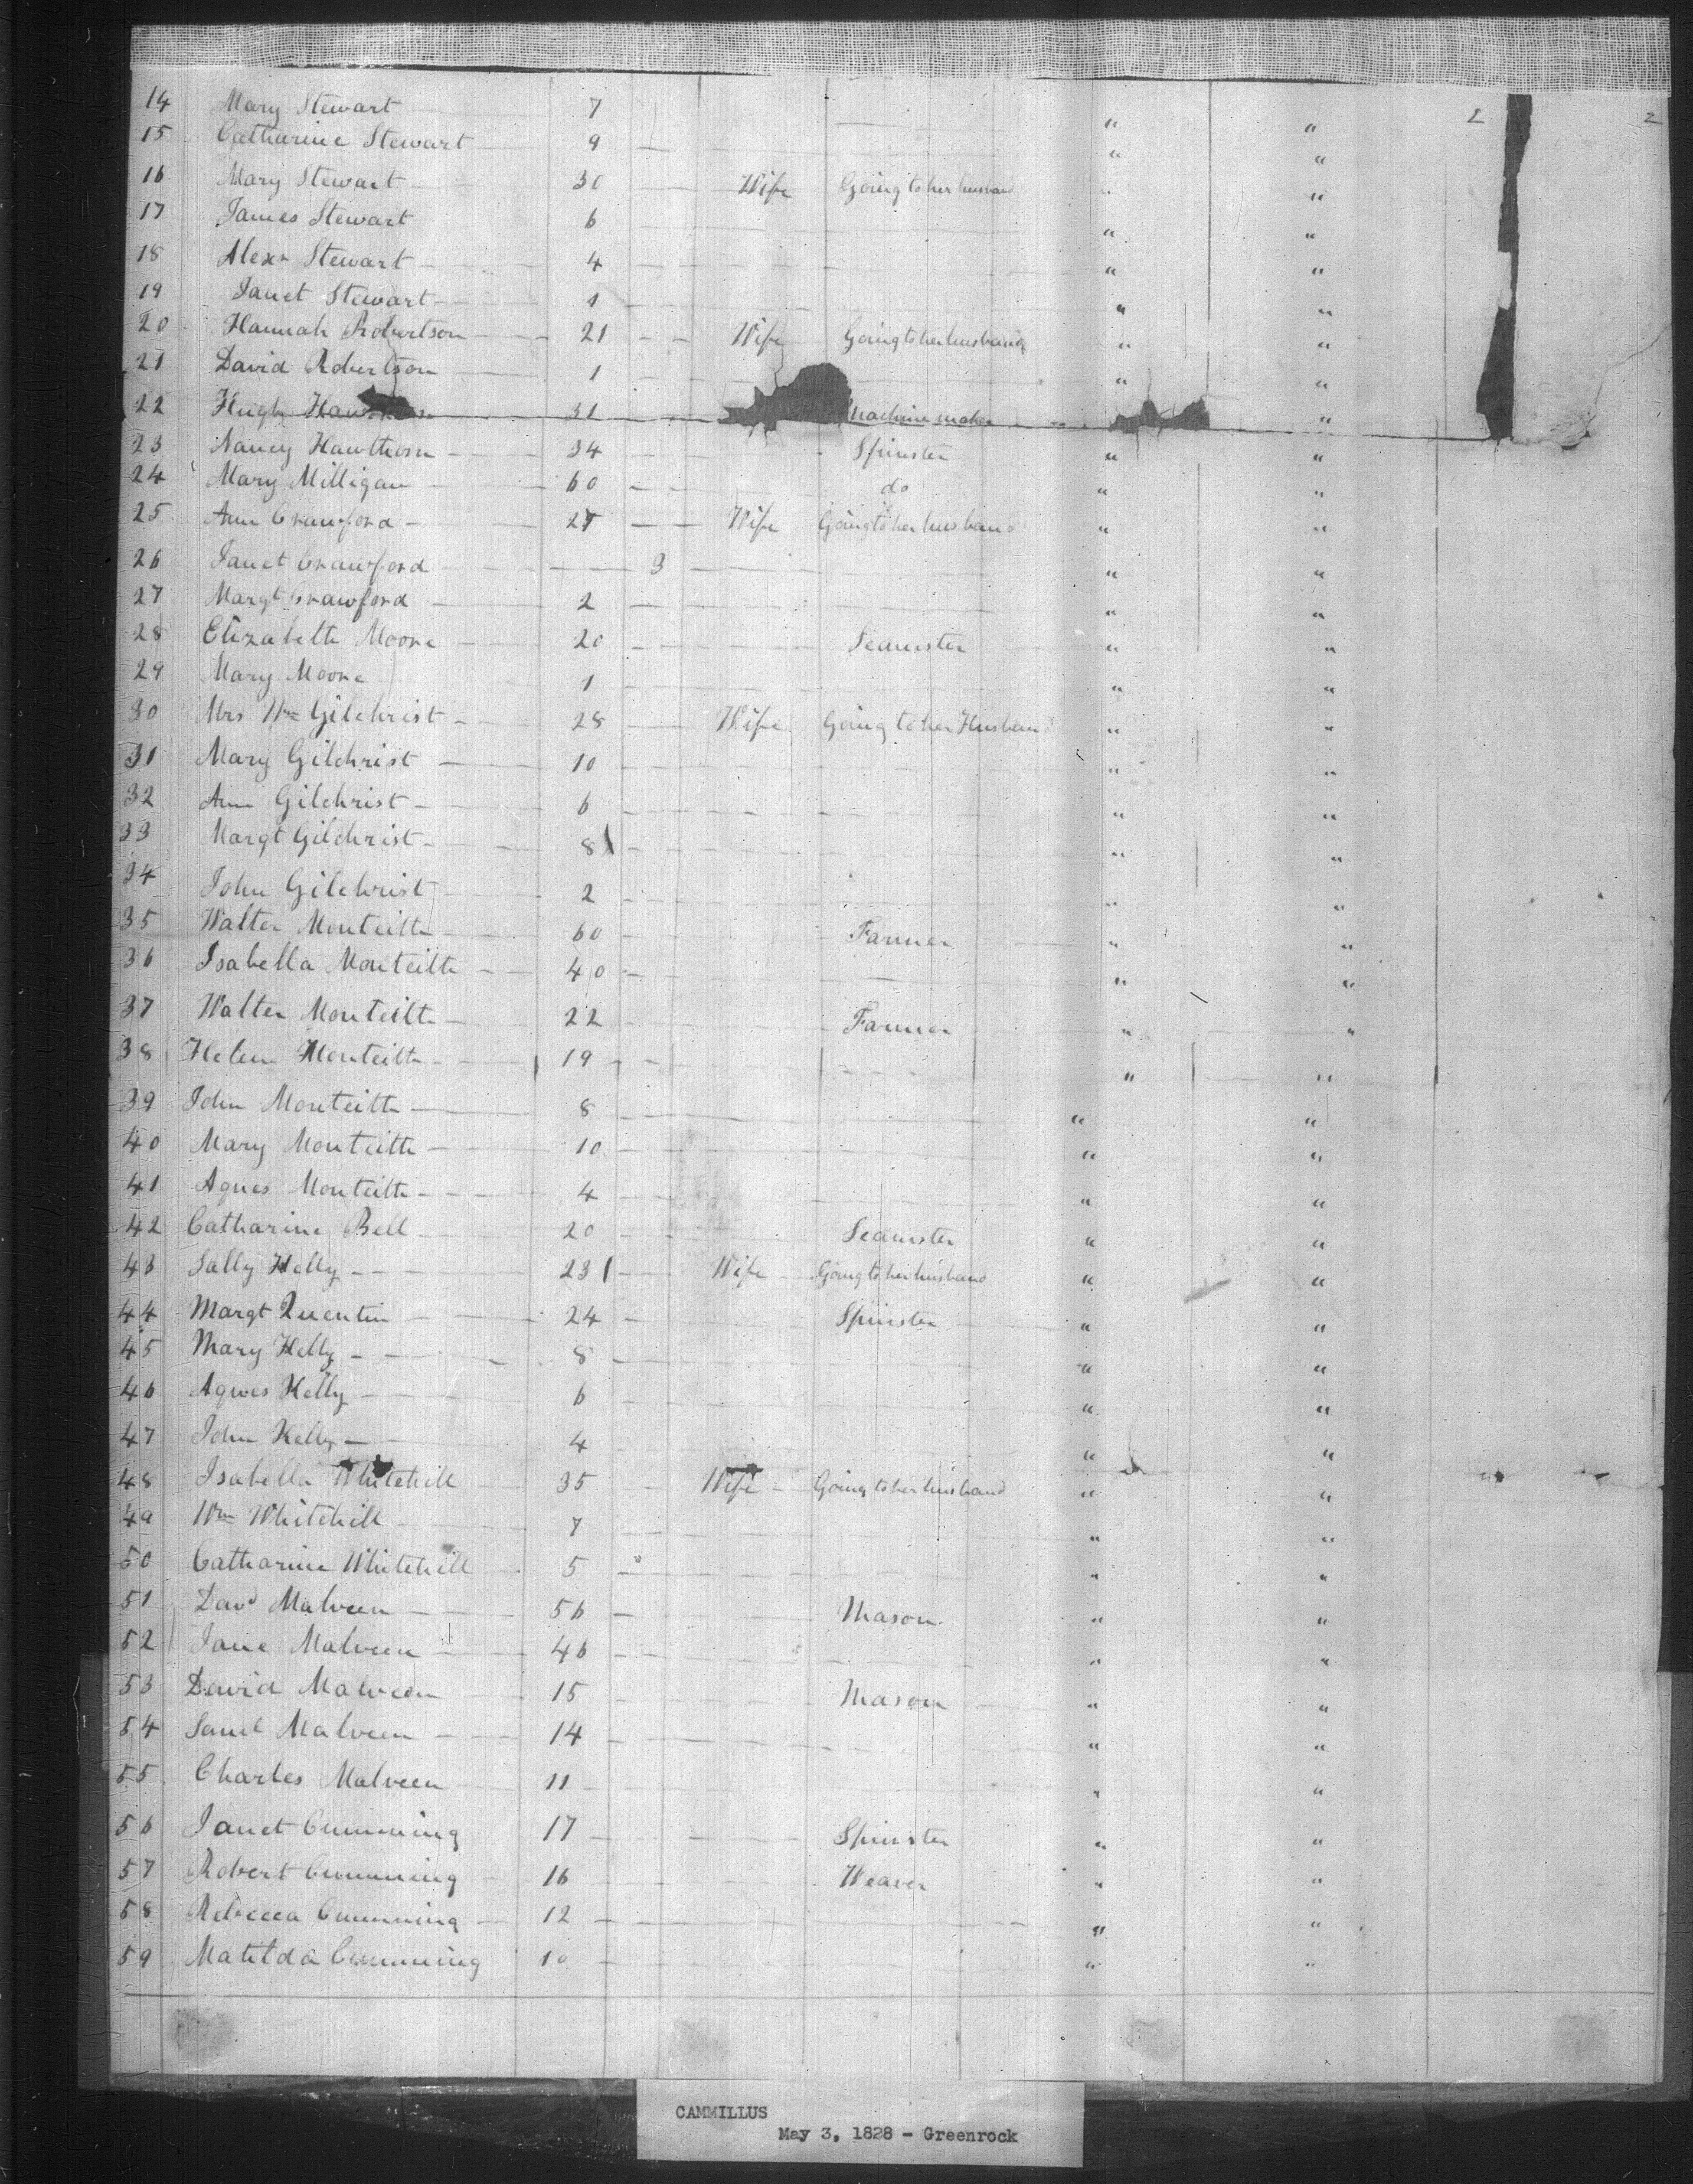 14 Mary Stewart 7 " " 2 2
15 Catharine Stewart 9 " "
16 Mary Stewart 30 Wife Going to her husband " "
17 James Stewart 6 " "
18 Alexr Stewart 4 " "
19 Janet Stewart 1 " "
20 Hannah Robertson 21 Wife Going to her husband " "
21 David Robertson 1 " "
22 Hugh 31 Machine maker "
23 Nancy Hawthorn 34 Spinster " "
24 Mary Milligan 60 do " "
25 Ann Crawford Wife Going to her husband " "
26 Janet Crawford 3 " "
27 Margt Crawford 2 " "
28 Elizabeth Moore 20 Seamster " "
29 Mary Moore 1 " "
30 Mrs Wm Gilchrist 28 Wife Going to her Husband " "
31 Mary Gilchrist 10 " "
32 Ann Gilchrist 6 " "
33 Margt Gilchrist 8 " "
34 John Gilchrist 2 " "
35 Walter Monteith 60 Farmer " "
36 Isabella Monteith 40 " "
37 Walter Monteith 22 Farmer " "
38 Helen Monteith 19 " "
39 John Monteith 8 " "
40 Mary Monteith 10 " "
41 Agnes Monteith 4 " "
42 Catharine Bell 20 Seamster " "
43 Sally Kelly 23 Wife Going to her husband " "
44 Margt Quentin 24 Spinster " "
45 Mary Kelly 8 " "
46 Agnes Kelly 6 " "
47 John Kelly 4 " "
48 Isabella Whitehill 35 Wife Going to her husband " "
49 Wm Whitehill 7 " "
50 Catharine Whitehill 5 " "
51 Davd Malveen 56 Mason " "
52 Jane Malveen 46 " "
53 David Malveen 15 Mason " "
54 Malveen 14 " "
55 Charles Malveen 11 " "
56 Janet Cumming 17 Spinster " "
57 Robert Cumming 16 Weaver " "
58 Rebecca Cumming 12 " "
59 Matilda Cumming 10 " "
CAMMILLUS
May 3, 1828 - Greenrock